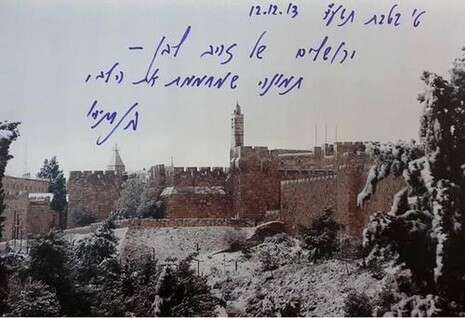 ט' בטבת תשע"ד 12.12.13
ירושלים של זהב לבן –
תמונה שמחממת את הלב!